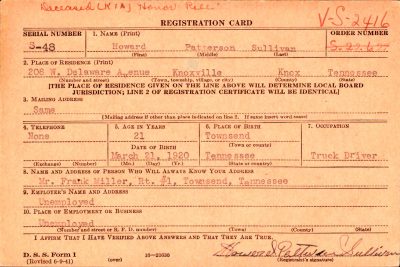 Deceased (KIA) Honor Roll
V-S-2416
REGISTRATION CARD
SERIAL NUMBER 1. NAME (Print) ORDER NUMBER
S-48 Howard Patterson Sullivan
(First) (Middle) (Last)
2. PLACE OF RESIDENCE (Print)
208 W. Delaware Avenue Knoxville Knox Tennessee
(Number and street) (Town, township, village, or city) (County) (State)
[THE PLACE OF RESIDENCE GIVEN ON THE LINE ABOVE WILL DETERMINE LOCAL BOARD
JURISDICTION; LINE 2 OF REGISTRATION CERTIFICATE WILL BE IDENTICAL]
3. MAILING ADDRESS
Same
[Mailing address if other than place indicated on line 2. If same insert word same]
4. TELEPHONE 5. AGE IN YEARS 6. PLACE OF BIRTH 7. OCCUPATION
None 21 Townsend
DATE OF BIRTH (Town or county)
March 21, 1920 Tennessee Truck Driver
8. NAME AND ADDRESS OF PERSON WHO WILL ALWAYS KNOW YOUR ADDRESS
Mr. Frank Miller, Rt. #1, Townsend, Tennessee
9. EMPLOYER'S NAME AND ADDRESS
Unemployed
10. PLACE OF EMPLOYMENT OR BUSINESS
Unemployed
(Number and street or R. F. D. number) (Town) (County) (State)
I AFFIRM THAT I HAVE VERIFIED ABOVE ANSWERS AND THAT THEY ARE TRUE.
D. S. S. Form 1 Howard Patterson Sullivan
(Revised 6-9-41) (over) (Registrant's signature)